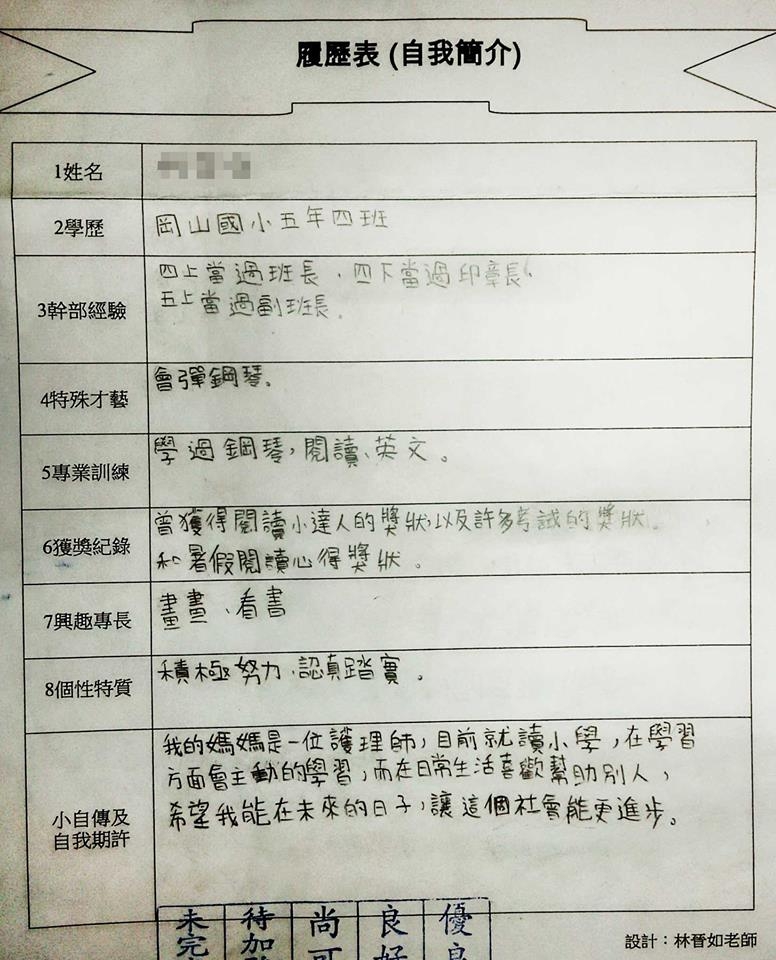 履歷表 (自我簡介)
1姓名
2學歷
岡山國小五年四班
3幹部經驗
四上當過班長、四下當過印章長、
五上當過副班長。
4特殊才藝
會彈鋼琴。
5專業訓練
學過鋼琴,閱讀、英文。
6獲獎紀錄
曾獲得閱讀小達人的獎狀,以及許多考試的獎狀。
和暑假閱讀心得獎狀。
7興趣專長
畫畫、看書
8個性特質
積極努力、認真踏實。
小自傳及
自我期許
我的媽媽是一位護理師,目前就讀小學,在學習
方面會主動的學習,而在日常生活喜歡幫助別人,
希望我能在未來的日子,讓這個社會能更進步。
未完
待加
尚可
良好
優良
設計:林晉如老師